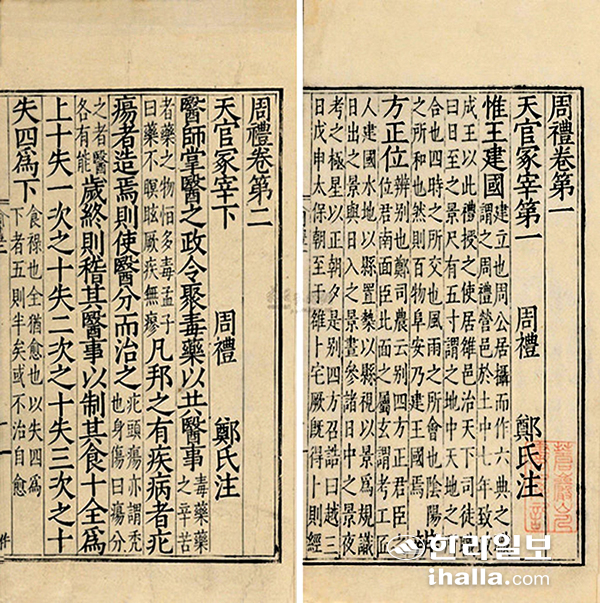 周禮卷第一
天官冢宰第一 周禮 鄭氏注
惟王建國 建立也周公居攝而作六典之職謂之周禮營邑於土中七年致政
成王以此禮授之使居雒邑治天下司徒職
曰日至之景尺有五寸謂之地中天地之所
合也四時之所交也風雨之所會也陰陽
之所和也然則百物阜安乃建王國焉
方正位 辨別也鄭司農云別四方正君臣之位君南面臣北面之屬玄謂考工匠
人建國水地以縣置槷以縣視以景爲規識
日出之景與日入之景晝參諸日中之景夜
考之極星以正朝夕是別四方召誥曰越三
日戊申太保朝至于雒卜宅厥既得卜則經
周禮卷第二
天官冢宰下 周禮 鄭氏注
醫師掌醫之政令聚毒藥以共醫事 毒藥藥之辛苦
者藥之物恒多毒孟子曰藥不瞑眩厥疾無瘳 凡邦之有疾病者疕
瘍者造焉則使醫分而治之 疕頭瘍亦謂禿也身傷曰瘍分
之者醫各有能 歲終則稽其醫事以制其食十全爲
上十失一次之十失二次之十失三次之十
失四爲下 食祿也全猶愈也以失四爲下者五則半矣或不治自愈
한라일보
ihalla.com